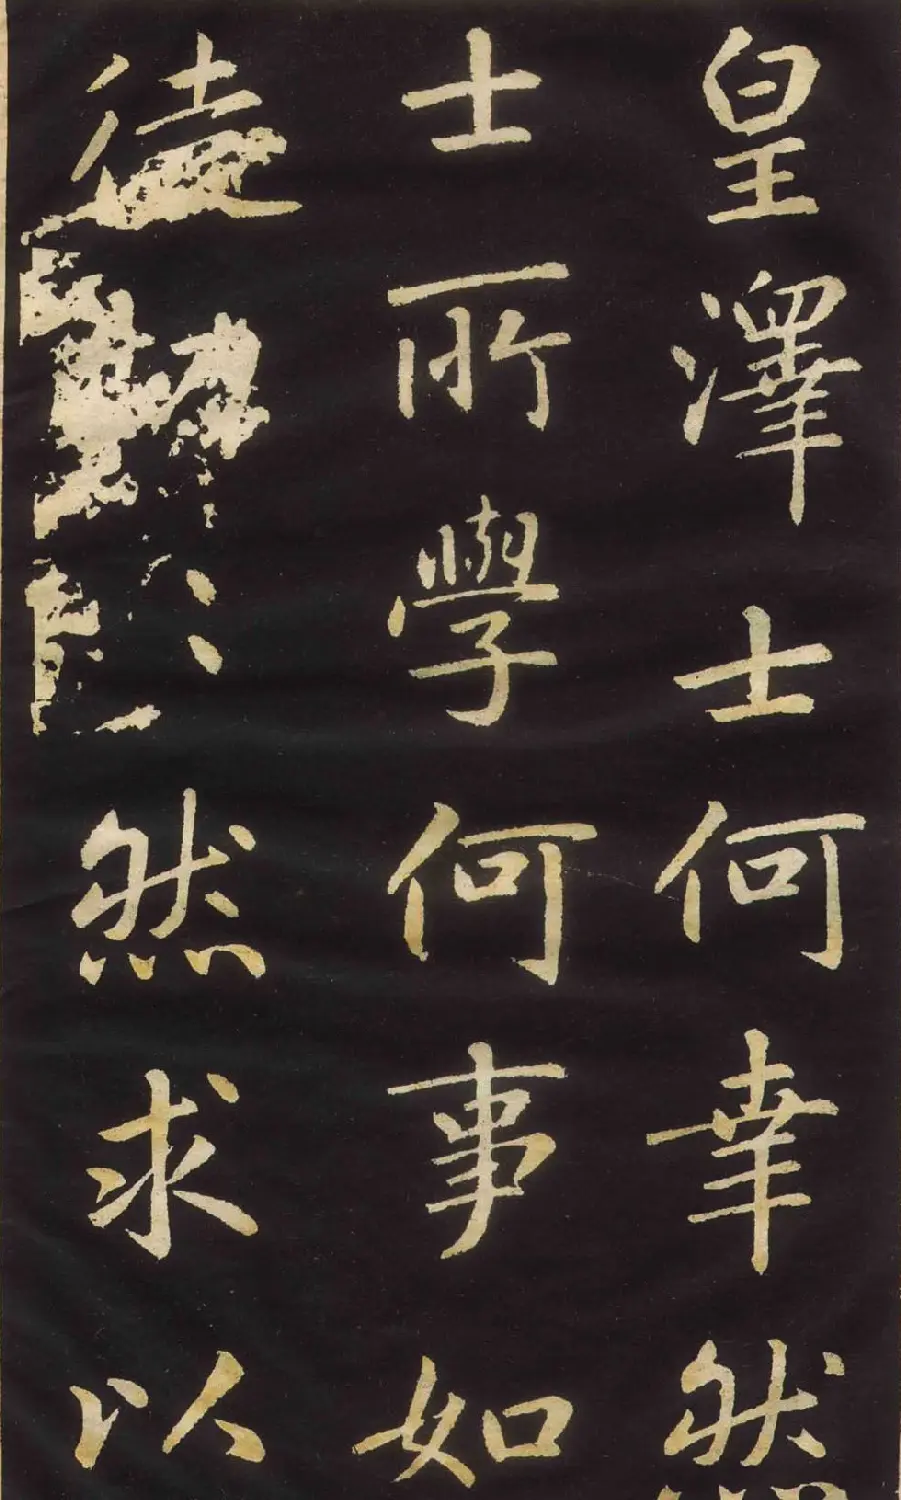 皇澤士何幸然
士所學何事如
徒
然求以